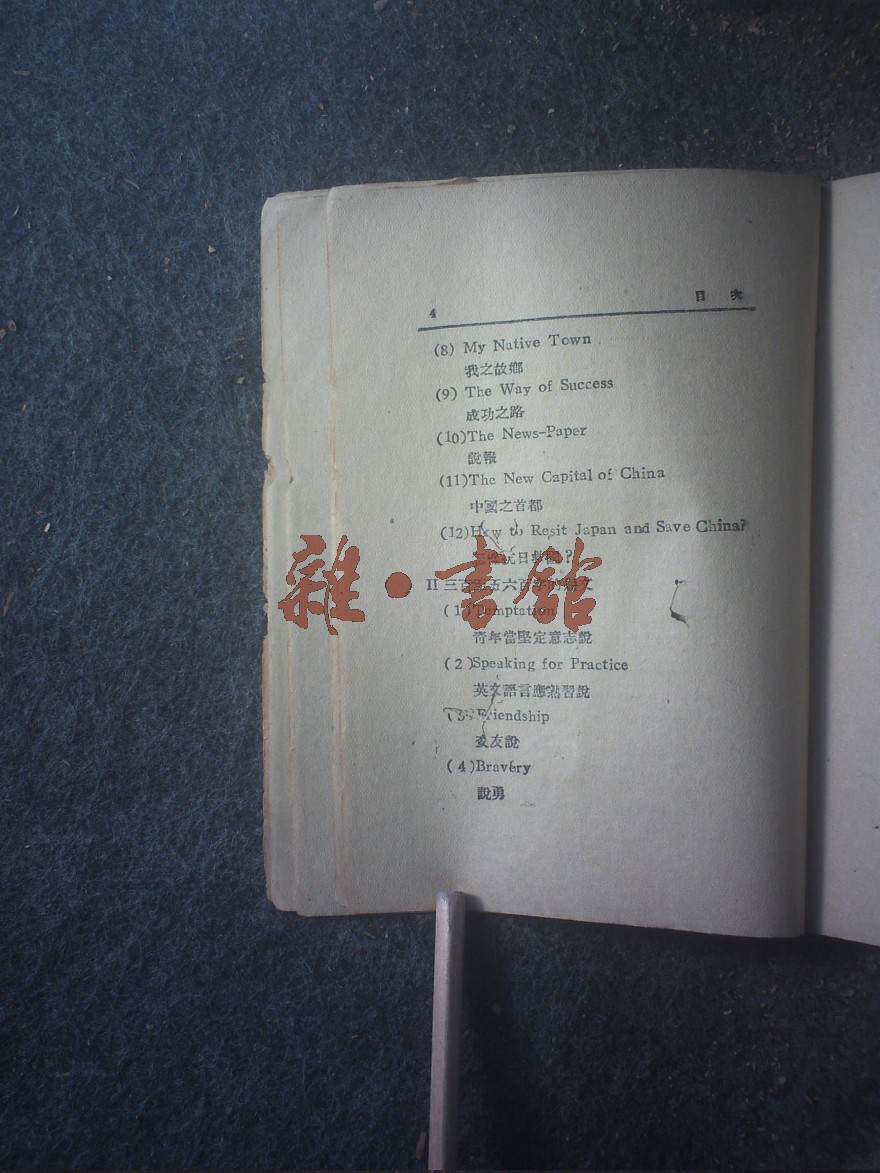 4 目 次
(8) My Native Town
我之故鄉
(9) The Way of Success
成功之路
(10)The News-Paper
說報
(11)The New Capital of China
中國之首都
(12)Hxw to Resit Japan and Save China?
抗日救國?
II 三百至五六百字的短文
(1)Temptation
青年當堅定意志說
(2)Speaking for Practice
英文語言應熟習說
(3)Friendship
交友說
(4)Bravery
說勇
雜·書館